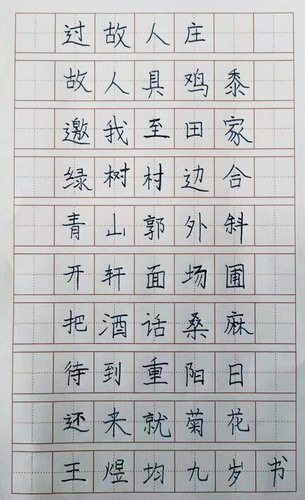 过故人庄
故人具鸡黍
邀我至田家
绿树村边合
青山郭外斜
开轩面场圃
把酒话桑麻
待到重阳日
还来就菊花
王煜均九岁书